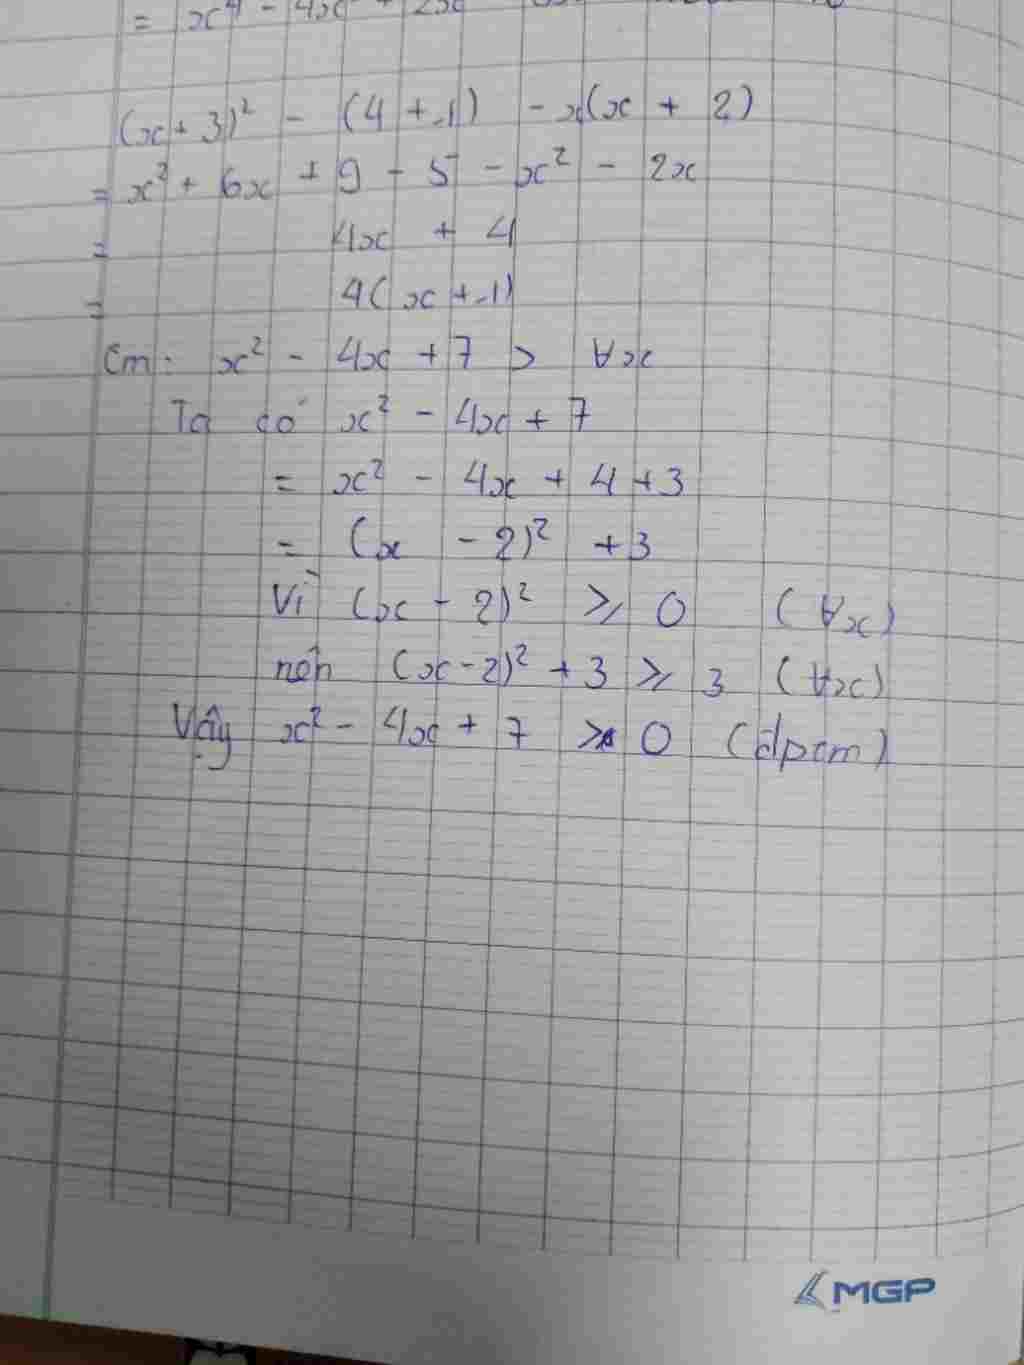 = x⁴ - 4x
(x + 3)² - (4 + 1) - x(x + 2)
= x² + 6x + 9 - 5 - x² - 2x
= 4x + 4
= 4(x + 1)
Cm: x² - 4x + 7 > ∀x
Ta có x² - 4x + 7
= x² - 4x + 4 + 3
= (x - 2)² + 3
Vì (x - 2)² ≥ 0 (∀x)
nên (x - 2)² + 3 ≥ 3 (∀x)
Vậy x² - 4x + 7 > 0 (đpcm)
MGP